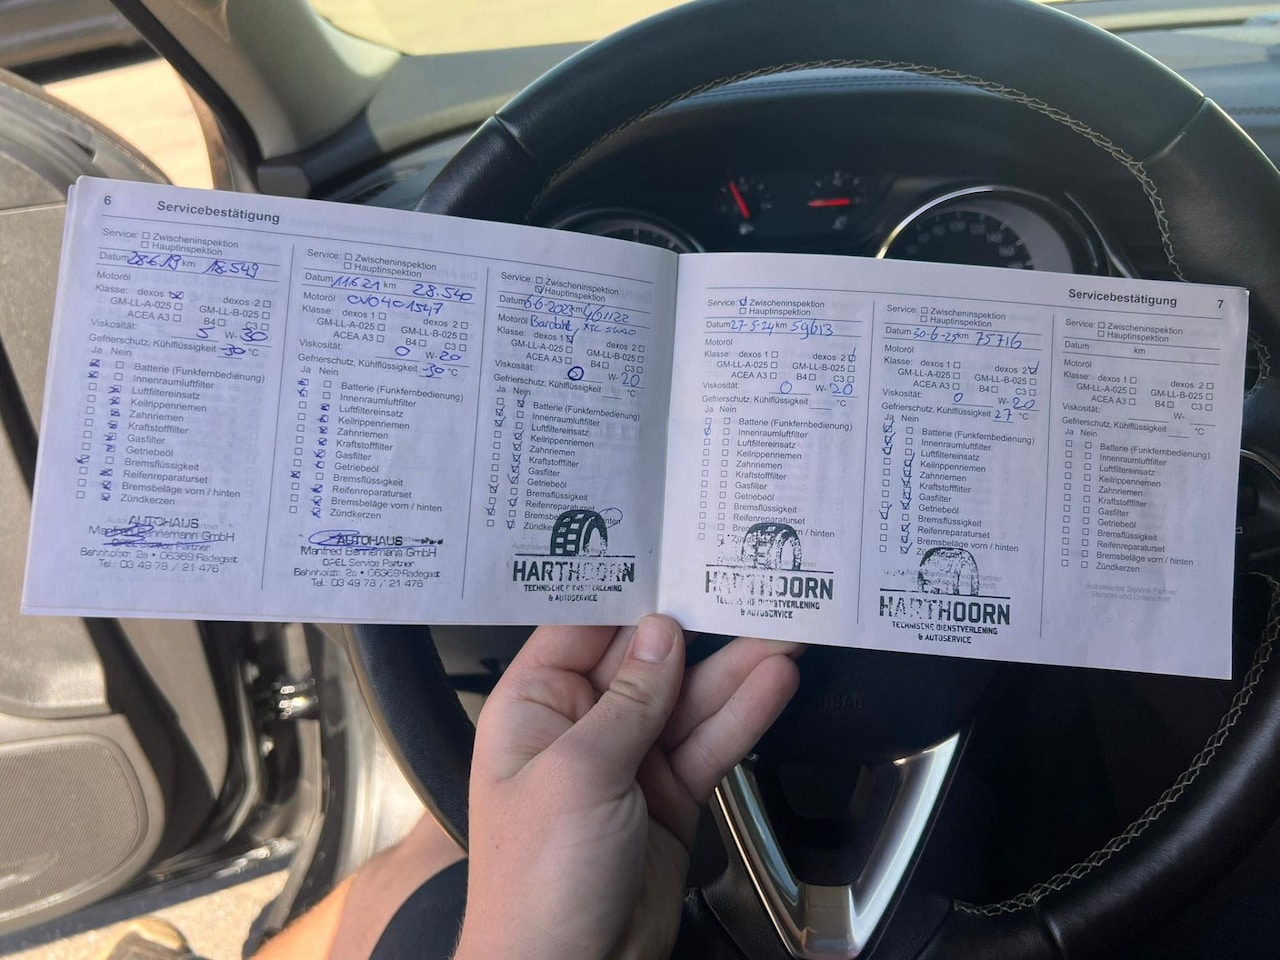 6 Servicebestätigung
Service: Zwischeninspektion
Hauptinspektion
Datum 28.6.19 km 18.549
Motoröl
Klasse: dexos dexos 2
GM-LL-A-025 GM-LL-B-025
ACEA A3 B4 C3
Viskosität: 5 W- 30
Gefrierschutz, Kühlflüssigkeit -30 °C
Ja Nein
Batterie (Funkfernbedienung)
Innenraumluftfilter
Luftfiltereinsatz
Keilrippenriemen
Zahnriemen
Kraftstofffilter
Gasfilter
Getriebeöl
Bremsflüssigkeit
Reifenreparaturset
Bremsbeläge vorn / hinten
Zündkerzen
AUTOHAUS
GmbH
Partner
Bahnhofstr. 2a • 06369 Radegast
Tel.: 03 49 78 / 21 476
Service: Zwischeninspektion
Hauptinspektion
Datum 11.6.21 km 28.540
Motoröl OVO401547
Klasse: dexos 1 dexos 2
GM-LL-A-025 GM-LL-B-025
ACEA A3 B4 C3
Viskosität: 0 W- 20
Gefrierschutz, Kühlflüssigkeit -30 °C
Ja Nein
Batterie (Funkfernbedienung)
Innenraumluftfilter
Luftfiltereinsatz
Keilrippenriemen
Zahnriemen
Kraftstofffilter
Gasfilter
Getriebeöl
Bremsflüssigkeit
Reifenreparaturset
Bremsbeläge vorn / hinten
Zündkerzen
AUTOHAUS
Manfred Bennemann GmbH
OPEL Service Partner
Bahnhofstr. 2a • 06369 Radegast
Tel.: 03 49 78 / 21 476
Service: Zwischeninspektion
Hauptinspektion
Datum 6-6-2023 km
Motoröl Bardahl XTC
Klasse: dexos 1 dexos 2
GM-LL-A-025 GM-LL-B-025
ACEA A3 B4 C3
Viskosität: 0 W- 20
Gefrierschutz, Kühlflüssigkeit °C
Ja Nein
Batterie (Funkfernbedienung)
Innenraumluftfilter
Luftfiltereinsatz
Keilrippenriemen
Zahnriemen
Kraftstofffilter
Gasfilter
Getriebeöl
Bremsflüssigkeit
Reifenreparaturset
HARTHOORN
TECHNISCHE DIENSTVERLENING
& AUTOSERVICE
Servicebestätigung 7
Service: Zwischeninspektion
Hauptinspektion
Datum 27-5-24 km 59613
Motoröl
Klasse: dexos 1 dexos 2
GM-LL-A-025 GM-LL-B-025
ACEA A3 B4 C3
Viskosität: 0 W- 20
Gefrierschutz, Kühlflüssigkeit °C
Ja Nein
Batterie (Funkfernbedienung)
Innenraumluftfilter
Luftfiltereinsatz
Keilrippenriemen
Zahnriemen
Kraftstofffilter
Gasfilter
Getriebeöl
Bremsflüssigkeit
Reifenreparaturset
HARTHOORN
TECHNISCHE DIENSTVERLENING
& AUTOSERVICE
Service: Zwischeninspektion
Hauptinspektion
Datum 30-6-25 km 75716
Motoröl
Klasse: dexos 1 dexos 2
GM-LL-A-025 GM-LL-B-025
ACEA A3 B4 C3
Viskosität: 0 W- 20
Gefrierschutz, Kühlflüssigkeit 27 °C
Ja Nein
Batterie (Funkfernbedienung)
Innenraumluftfilter
Luftfiltereinsatz
Keilrippenriemen
Zahnriemen
Kraftstofffilter
Gasfilter
Getriebeöl
Bremsflüssigkeit
Reifenreparaturset
Bremsbeläge vorn / hinten
Zündkerzen
HARTHOORN
TECHNISCHE DIENSTVERLENING
& AUTOSERVICE
Service: Zwischeninspektion
Hauptinspektion
Datum km
Motoröl
Klasse: dexos 1 dexos 2
GM-LL-A-025 GM-LL-B-025
ACEA A3 B4 C3
Viskosität: W-
Gefrierschutz, Kühlflüssigkeit °C
Ja Nein
Batterie (Funkfernbedienung)
Innenraumluftfilter
Luftfiltereinsatz
Keilrippenriemen
Zahnriemen
Kraftstofffilter
Gasfilter
Getriebeöl
Bremsflüssigkeit
Reifenreparaturset
Bremsbeläge vorn / hinten
Zündkerzen
Autorisierter Service Partner
Stempel und Unterschrift